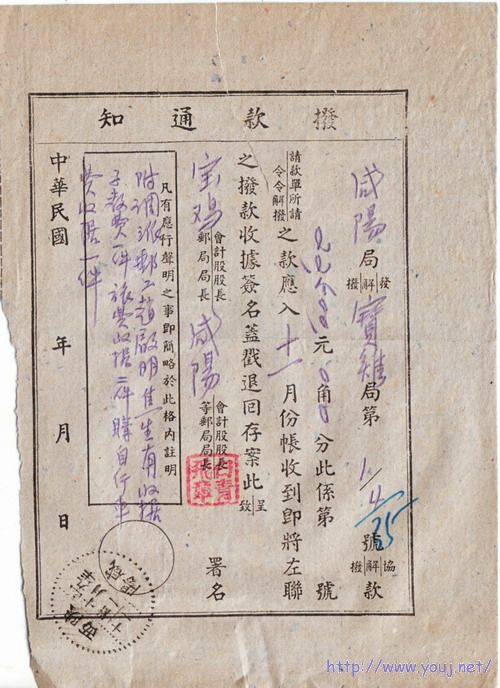 撥款通知
咸陽局發解撥寶雞局第1/4/25號協解撥款
請款單所請令令解撥之款應入十一月份帳收到即將左聯
元角分此係第號
之撥款收據簽名蓋戳退回存案此呈致
宝鸡會計股股長郵局局長咸陽會計股股長等郵局局長
署名
凡有應行聲明之事即簡略於此格內註明
附調派郵工趙啟明
子教費一件旅費收据二件購自行車
費收据一件
中華民國年月日
http://www.youj.net/